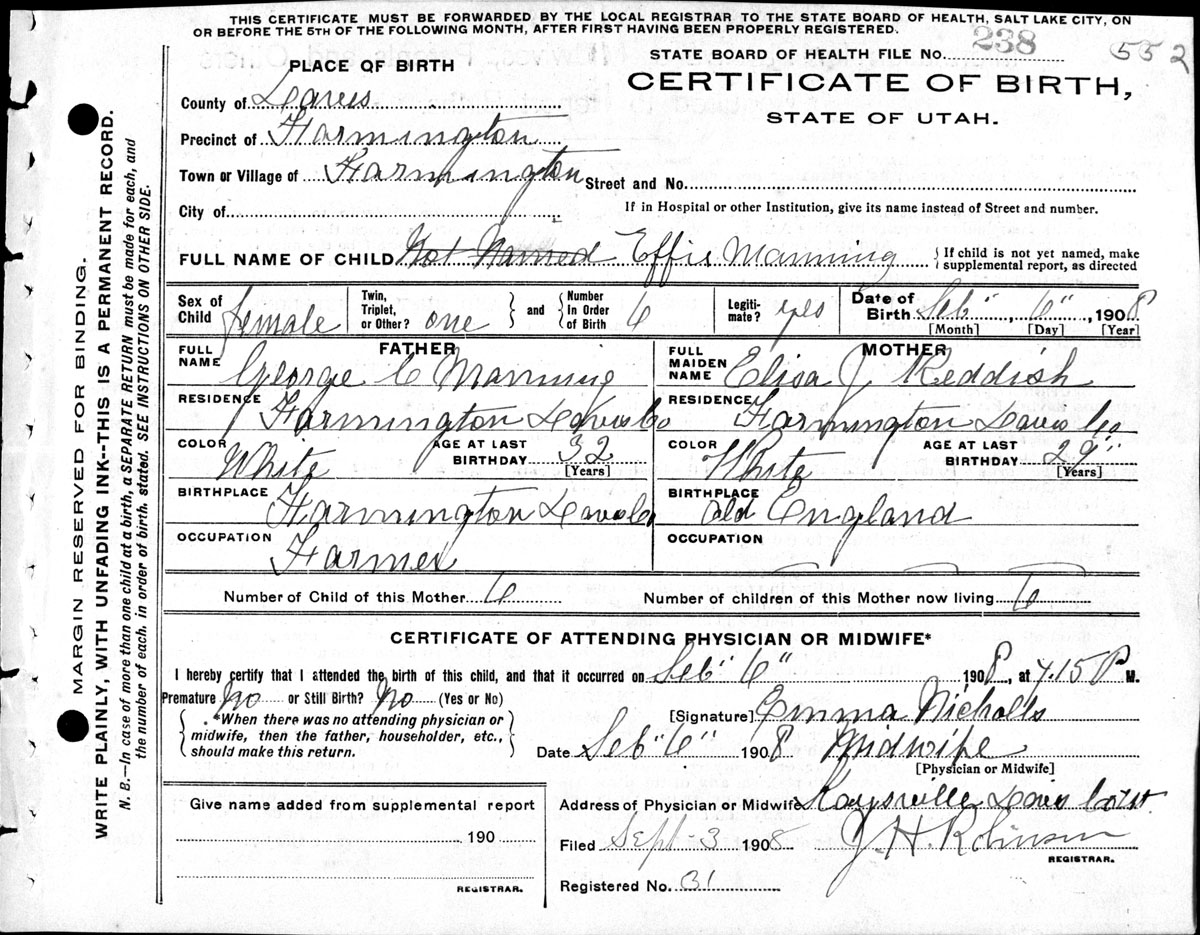 THIS CERTIFICATE MUST BE FORWARDED BY THE LOCAL REGISTRAR TO THE STATE BOARD OF HEALTH, SALT LAKE CITY, ON
OR BEFORE THE 5TH OF THE FOLLOWING MONTH, AFTER FIRST HAVING BEEN PROPERLY REGISTERED.
STATE BOARD OF HEALTH FILE No. 238 552
PLACE OF BIRTH
CERTIFICATE OF BIRTH,
STATE OF UTAH.
County of Davis
Precinct of Farmington
Town or Village of Farmington Street and No.
City of If in Hospital or other Institution, give its name instead of Street and number.
FULL NAME OF CHILD Not Named Effie Manning { If child is not yet named, make supplemental report, as directed
Sex of Child female Twin, Triplet, or Other? one } and { Number In Order of Birth 6 Legiti-mate? yes Date of Birth Feb" 6", 1908
[Month] [Day] [Year]
FATHER MOTHER
FULL NAME George C Manning FULL MAIDEN NAME Elisa J Reddish
RESIDENCE Farmington Davis Co RESIDENCE Farmington Davis Co
COLOR White AGE AT LAST BIRTHDAY 32 [Years] COLOR White AGE AT LAST BIRTHDAY 29" [Years]
BIRTHPLACE Farmington Davis Co BIRTHPLACE old England
OCCUPATION Farmer OCCUPATION
Number of Child of this Mother 6 Number of children of this Mother now living 6
CERTIFICATE OF ATTENDING PHYSICIAN OR MIDWIFE*
I hereby certify that I attended the birth of this child, and that it occurred on Feb" 6" 1908, at 7.15 P M.
Premature No or Still Birth? No (Yes or No)
{ *When there was no attending physician or midwife, then the father, householder, etc., should make this return. }
[Signature] Emma Nicholls
Date Feb" 6" 1908 Midwife
[Physician or Midwife]
Give name added from supplemental report
190
REGISTRAR.
Address of Physician or Midwife Kaysville Davis Co Ut.
Filed Sept-3 1908 J. H. Robinson
REGISTRAR.
Registered No. 31
MARGIN RESERVED FOR BINDING.
WRITE PLAINLY, WITH UNFADING INK--THIS IS A PERMANENT RECORD.
N. B.—In case of more than one child at a birth, a SEPARATE RETURN must be made for each, and
the number of each, in order of birth, stated. SEE INSTRUCTIONS ON OTHER SIDE.